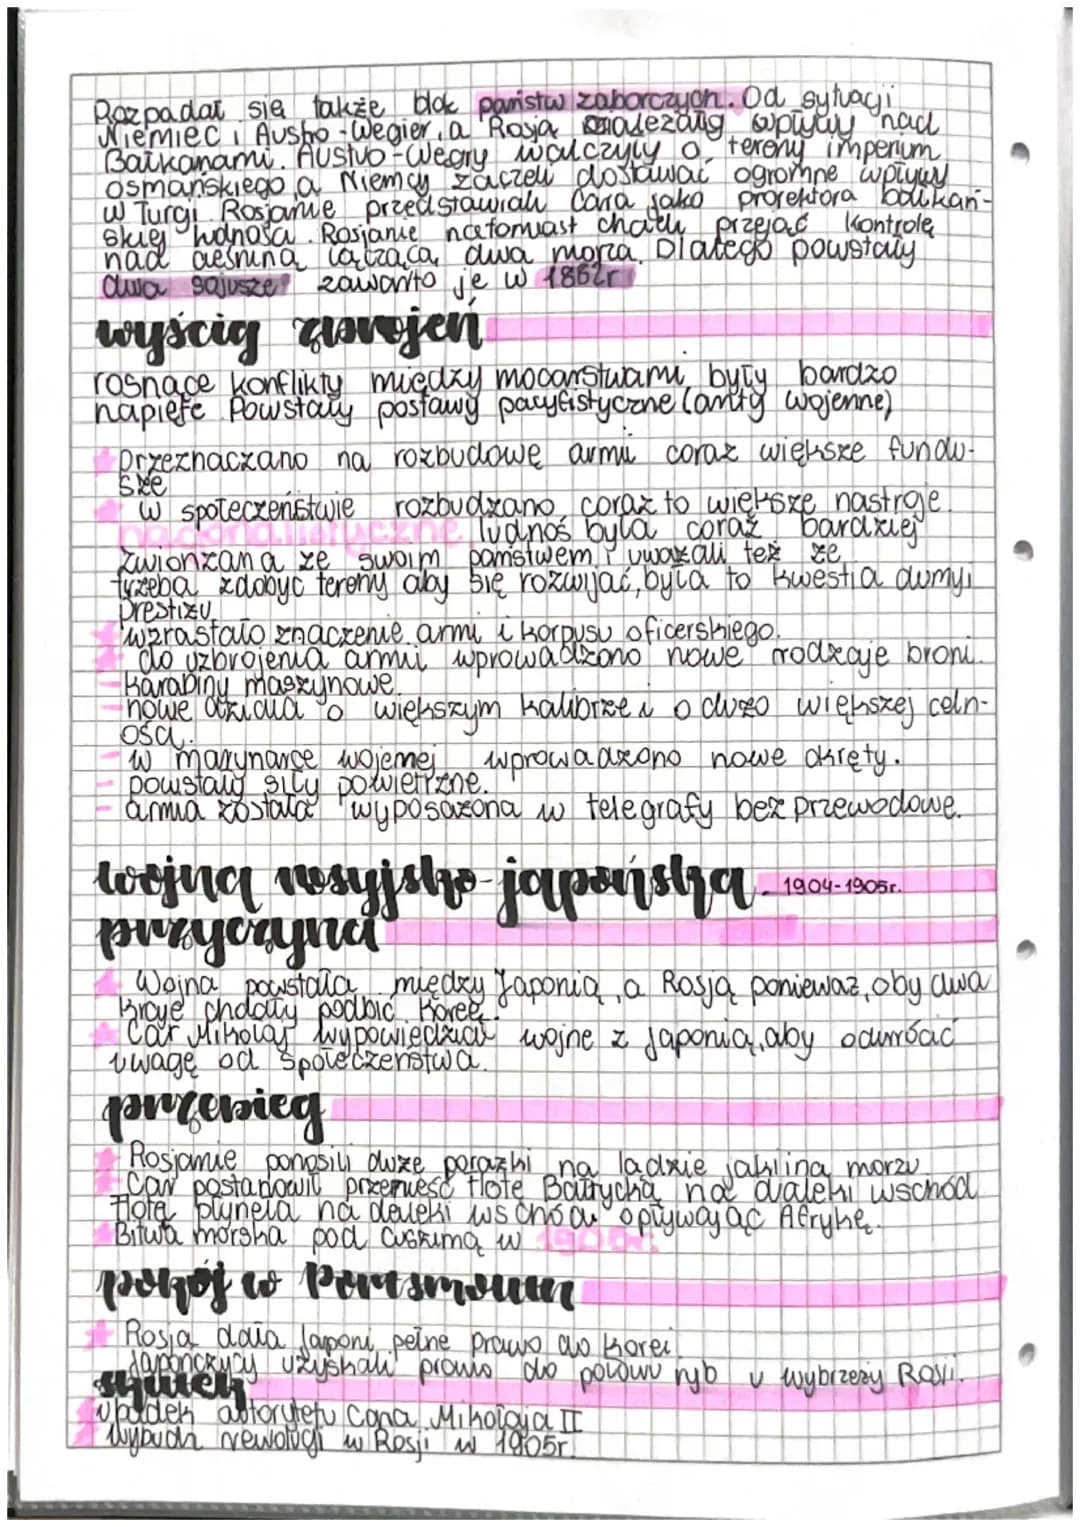 Rozpadał się także blok państw zaborczych. Od sytuacji
Niemiec i Austro-Węgier, a Rosją należały wpływy nad
Bałkanami. Austro-Węgry walczyły o tereny imperium
osmańskiego, a Niemcy zaczeli dostawać ogromne wpływy
w Turcji. Rosjanie przedstawiali Cara jako prorektora bałkań-
skiej. Rosjanie natomiast chcieli przejąć kontrolę
nad cieśniną łączącą dwa morza. Dlatego powstały
dwa sojusze zawarto je w 1882r
wyścig zbrojeń
rosnące konflikty między mocarstwami były bardzo
napięte. Powstały postawy pacyfistyczne (anty wojenne)
przeznaczano na rozbudowę armii coraz większe fundu-
sze
w społeczeństwie rozbudzano coraz to większe nastroje
nacjonalistyczne, ludnoś była coraz bardziej
zwionzana ze swoim państwem i uważali też że
trzeba zdobyć tereny aby się rozwijać, była to kwestia dumy i
prestiżu
wzrastało znaczenie armi i korpusu oficerskiego.
do uzbrojenia armii wprowadzono nowe rodzaje broni.
- karabiny maszynowe.
- nowe działa o większym kalibrze i o dużo większej celn-
ości.
- w marynarce wojennej wprowadzono nowe okręty.
- powstały siły powietrzne.
- armia została wyposażona w telegrafy bez przewodowe.
wojna rosyjsko-japońska 1904-1905r.
przyczyna
Wojna powstała między Japonią, a Rosją ponieważ, oby dwa
kraje chciały podbić Koreę.
Car Mikołaj wypowiedział wojne z Japonią, aby odwrócić
uwagę od społeczeństwa.
przebieg
Rosjanie ponosili duże porażki na lądzie jak i na morzu.
Car postanowił przenieść flotę Bałtycką na daleki wschód
flota płyneła na daleki wschód opływając Afrykę.
Bitwa morska pod Cuszimą w 1905r.
pokój w Portsmouth
Rosja dała Japoni pełne prawo do Korei.
Japończycy uzyskali prawo do połowu ryb u wybrzeży Rosji.
skutek
upadek autorytetu Cara Mikołaja II
wybuch rewolucji w Rosji w 1905r.